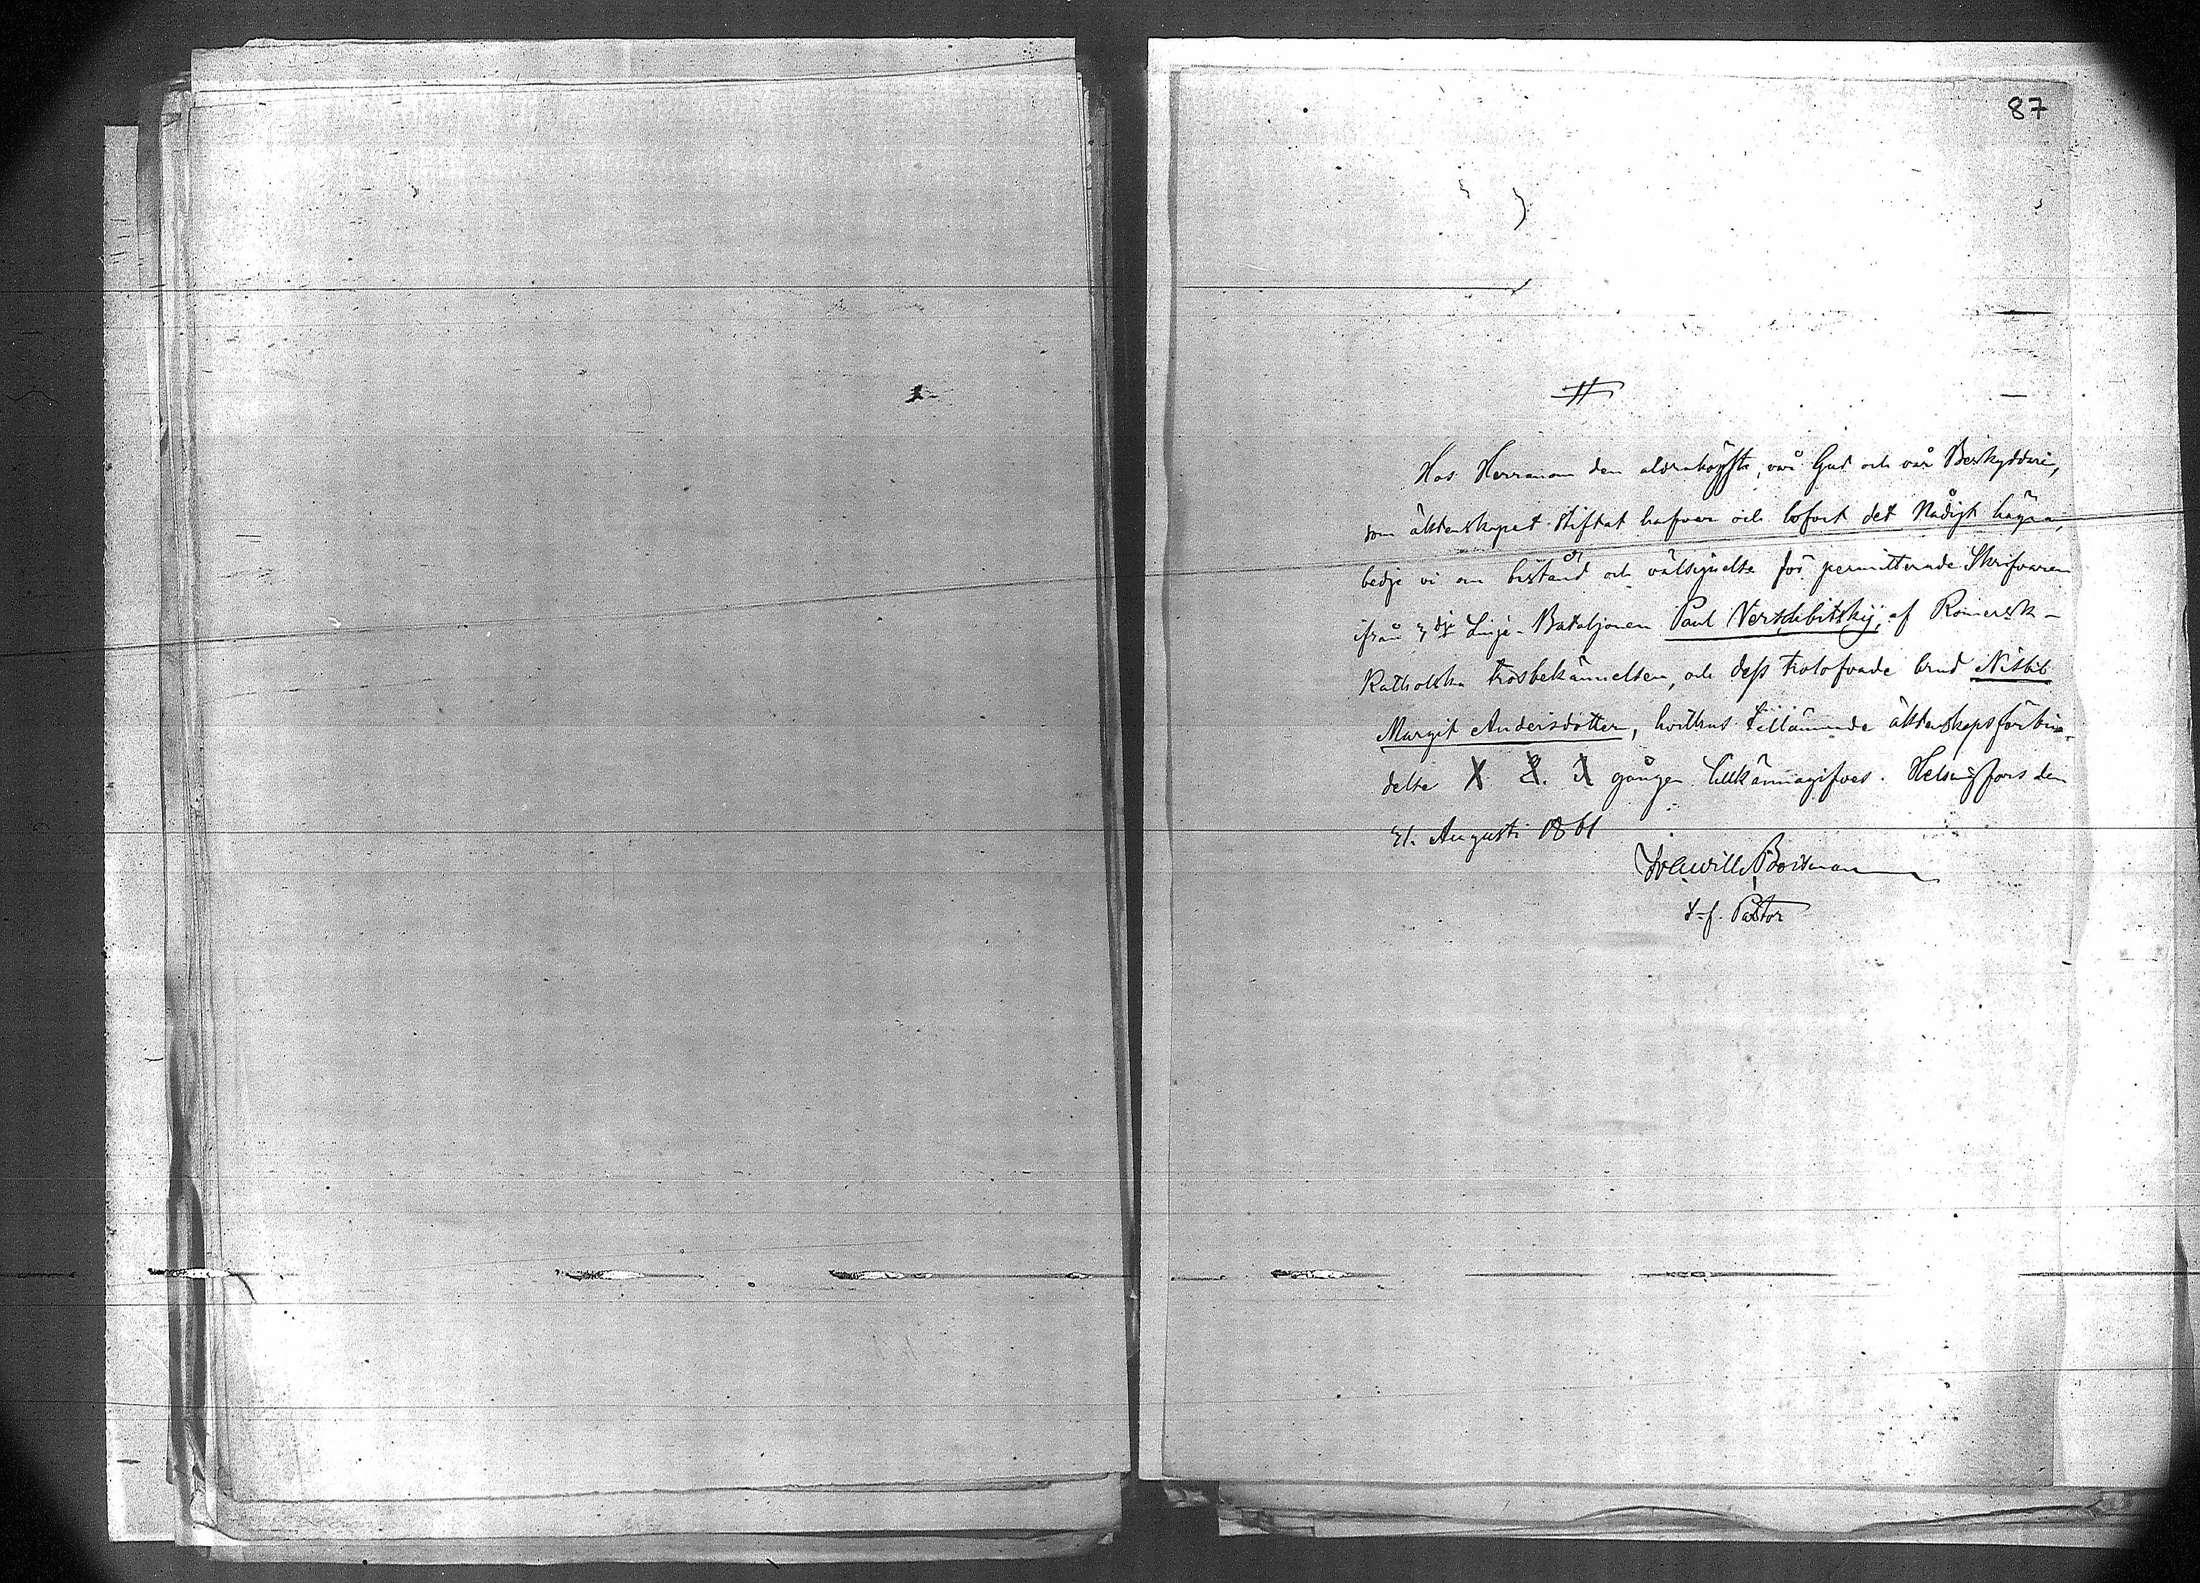 87
Hos Herranom den aldrahögste, vår Gud och vår Beskyddare,
som äktenskapet stiftat hafver och lofvat det Nådigt hägna,
bedje vi om bistånd och välsignelse för permitterade Skrifvaren
ifrån Linje-Bataljonen Paul Verschbitskij, af Romersk-
Katholska trosbekännelsen, och dess trolofvade brud
Margit Andersdotter, hvilkas tillämnade äktenskapsförbin-
delse 1. 2. 3 gången tillkännagifves. Helsingfors den
21. Augusti 1861
t-f. Pastor